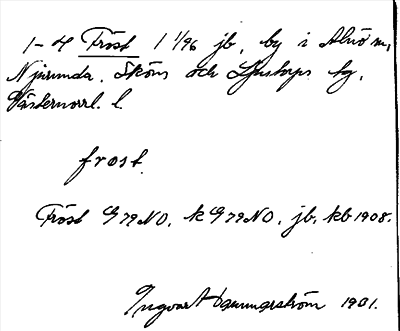 1-4 Fröst 1 1/96 jb, by i Alnö m,
Njurunda, Sköns och Ljustorps tg,
Västernorrl. l.
frost.
Fröst G79NO, k G79NO, jb, kb 1908.
Ingvar Hammarström 1901.